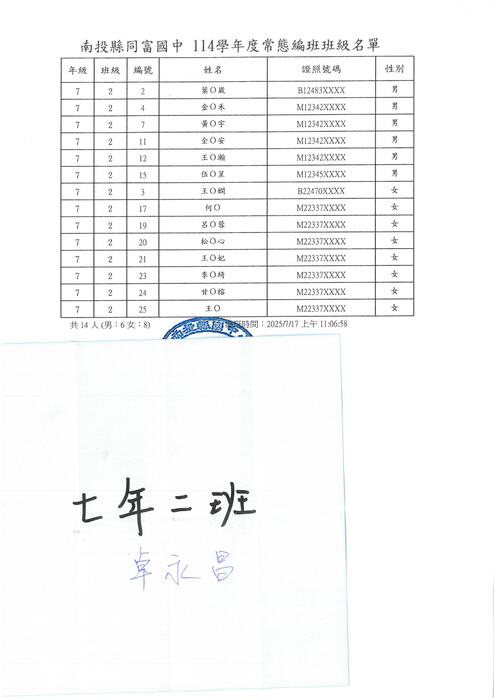 南投縣同富國中 114學年度常態編班班級名單
年級 班級 編號 姓名 證照號碼 性別
7 2 2 葉O崴 B12483XXXX 男
7 2 4 金O禾 M12342XXXX 男
7 2 7 黃O宇 M12342XXXX 男
7 2 11 全O安 M12342XXXX 男
7 2 12 王O瀚 M12342XXXX 男
7 2 15 伍O呈 M12345XXXX 男
7 2 3 王O嫻 B22470XXXX 女
7 2 17 何O M22337XXXX 女
7 2 19 呂O蓉 M22337XXXX 女
7 2 20 松O心 M22337XXXX 女
7 2 21 王O妃 M22337XXXX 女
7 2 23 李O綺 M22337XXXX 女
7 2 24 甘O榕 M22337XXXX 女
7 2 25 王O M22337XXXX 女
共14人(男：6 女：8) 時間：2025/7/17 上午 11:06:58
七年二班
卓永昌